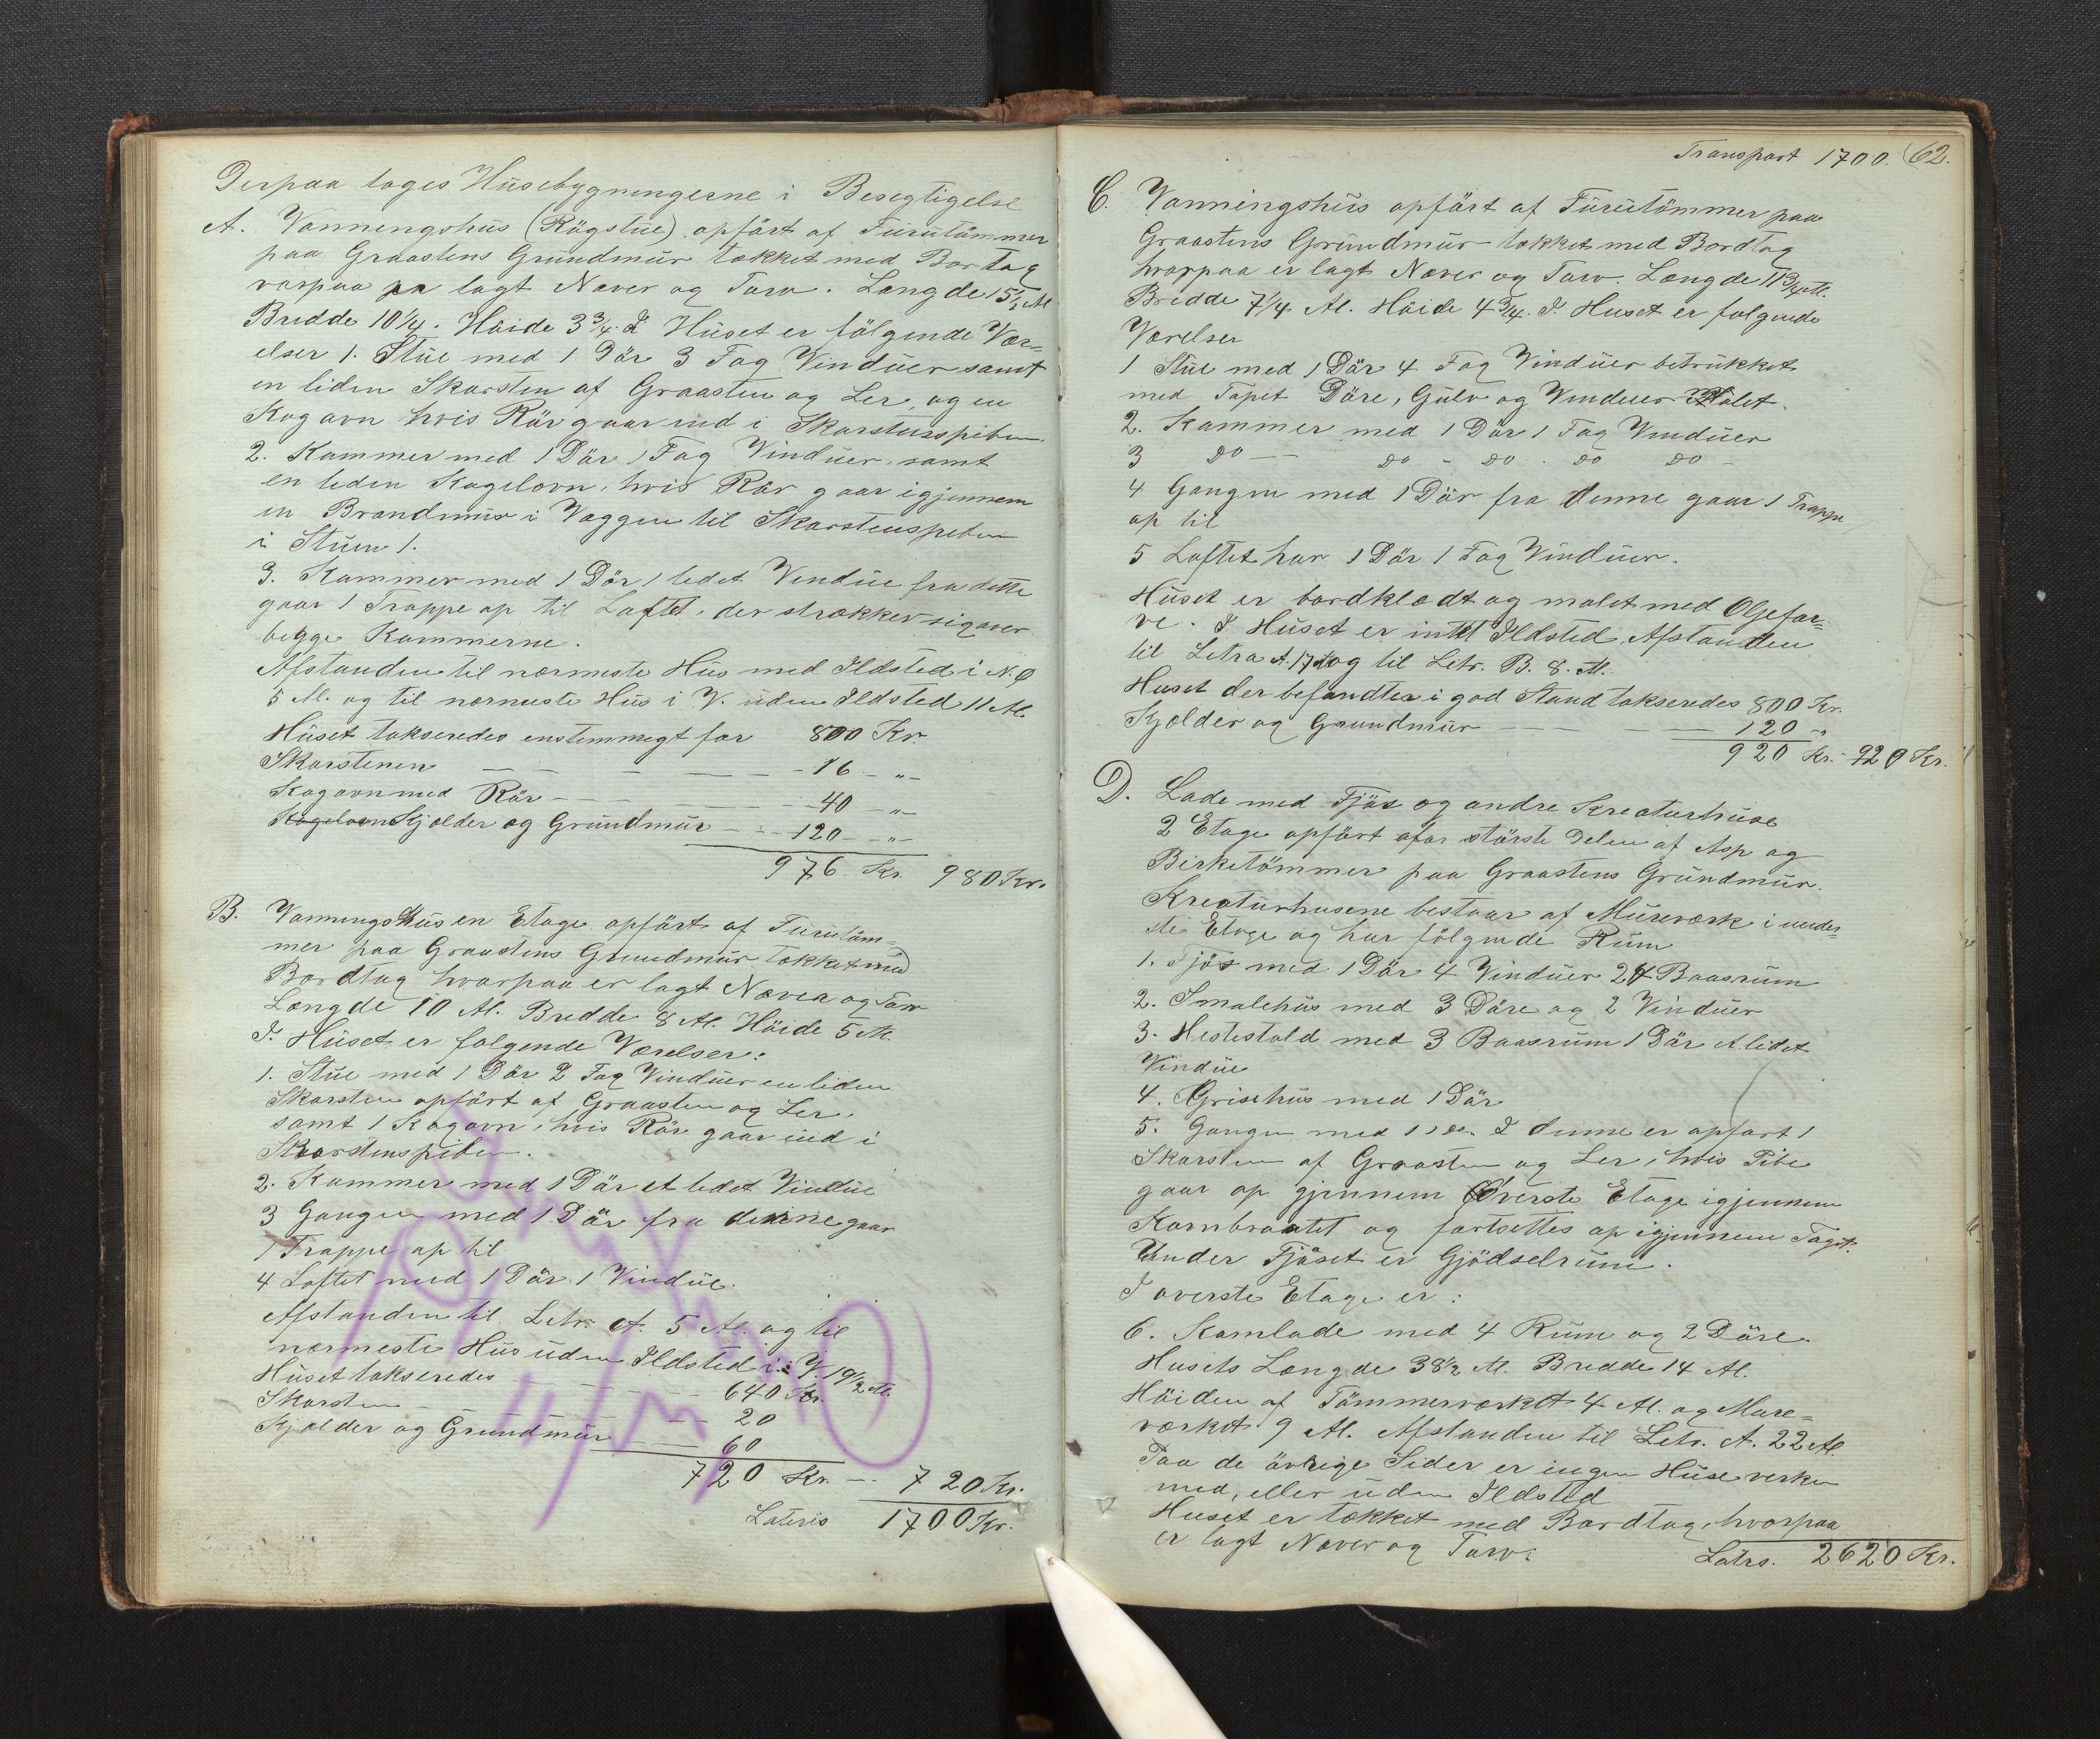 Derpaa toges Husebygningerne i Besegtigelse
A. Vanningshus (Rögstue) opfört af Furutömmer
paa Graastens Grundmur tækket med Bortag
varpaa er lagt Næver og Tarv. Længde 15½ Al
Bredde 10¼. Höide 3¾. I Huset er fölgende Vær=
elser 1. Stue med 1 Dör 3 Fag Vinduer samt
en liden Skarsten af Graasten og Ler, og en
Kogovn hvis Rör gaar ind i Skarstensspiben.
2. Kammer med 1 Dör 1 Fag Vinduer, samt
en liden Kogelovn, hvis Rör gaar igjennem
en Brandmur i Væggen til Skarstenspiben
i Stuen 1.
3. Kammer med 1 Dör 1 lidet Vindue fra dette
gaar 1 Trappe op til Loftet, der strækker sig over
begge Kammerne.
Afstanden til nærmeste Hus med Ildsted i N.Ø
5 Al. og til nærmeste Hus i V. uden Ildsted 11 Al.
Huset takseredes enstemmigt for 800 Kr.
Skarstenen — — — — 16 — „ —
Kogovn med Rör — — — 40 — „ —
Kogelovn Kjælder og Grundmur — — 120 — „ —
976 Kr. 980 Kr.
B. Vanningshus en Etage opfört af Furutöm=
mer paa Graastens Grundmur tækket med
Bordtag hvorpaa er lagt Næver og Tarv
Længde 10 Al. Bredde 8 Al. Höide 5 Al.
I Huset er folgende Værelser:
1. Stue med 1 Dör 2 Fag Vinduer en liden
Skarsten opfört af Graasten og Ler,
samt 1 Kogovn, hvis Rör gaar ind i
Skarstenspiben.
2. Kammer med 1 Dör et lidet Vindue
3 Gangen med 1 Dör fra denne gaar
1 Trappe op til
4 Loftet med 1 Dör 1 Vindue.
Afstanden til Letr. A. 5 Al. og til
nærmeste Hus uden Ildsted i V. 19½ Al.
Huset takseredes — — — — 640 Kr.
Skarsten — — — 20
Kjælder og Grundmur — — 60
720 Kr. — 720 Kr.
Lateris 1700 Kr.
Transport 1700. 62.
C. Vanningshus opfört af Furutömmer paa
Graastens Grundmur tækket med Bordtag
hvorpaa er lagt Næver og Tarv. Længde 11¾ Al.
Bredde 7¼ Al. Höide 4¾. I Huset er folgende
Værelser
1 Stue med 1 Dör 4 Fag Vinduer betrukket
med Tapet Döre, Gulv og Vinduer Malet.
2. Kammer med 1 Dör 1 Fag Vinduer
3 Do — — Do - Do . Do Do -
4 Gangen med 1 Dör fra denne gaar 1 Trappe
op til
5 Loftet har 1 Dör 1 Fag Vinduer.
Huset er bordklædt og malet med Oljefar=
ve. I Huset er intet Ildsted, Afstanden
til Letra A. 17 Al og til Letr. B. 8. Al.
Huset der befandtes i god Stand takseredes 800 Kr.
Kjælder og Grundmur — — — 120 „
920 Kr. — 920 Kr.
D. Lade med Fjös og andre Kreaturhuse
2 Etage opfört for störste Delen af Asp og
Birketömmer paa Graastens Grundmur.
Kreaturhusene bestaar af Mureværk i under=
ste Etage og har fölgende Rum
1. Fjös med 1 Dör 4 Vinduer 24 Baasrum
2. Smalehus med 3 Döre og 2 Vinduer
3. Hestestald med 3 Baasrum 1 Dör et lidet
Vindue
4. Grisehus med 1 Dör
5. Gangen med 1 do. I denne er opfört 1
Skarsten af Graasten og Ler, hvis Pibe
gaar op gjennem Överste Etage igjennem
Kornbraatet og fortsettes op igjennem Taget.
Under Fjöset er Gjödselrum.
I overste Etage er:
6. Kornlade med 4 Rum og 2 Döre.
Husets Længde 38½ Al. Bredde 14 Al.
Höiden af Tömmerværket 4 Al. og Mure=
værket 9 Al. Afstanden til Letr. A. 22 Al
Paa de övrige Sider er ingen Huse verken
med, eller uden Ildsted
Huset er tækket med Bordtag, hvorpaa
er lagt Næver og Tarv.
Latrs. 2620 Kr.